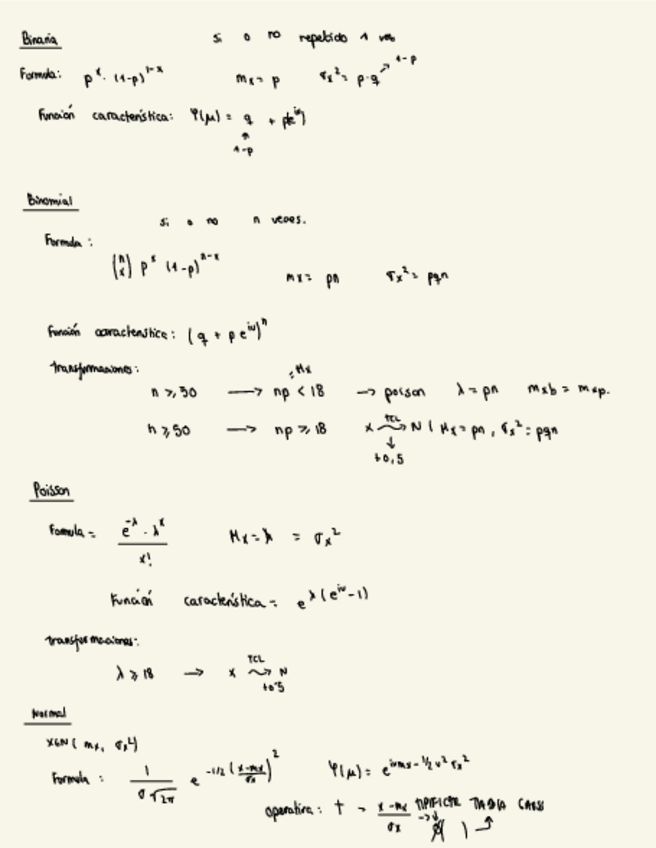 Binaria si o no repetido 1 vez
Formula: p^x · (1-p)^1-x mx = p σx² = p·q → 1-p
Función característica: Ψ(μ) = q + pe^iv
↑
1-p
Binomial
si o no n veces.
Formula:
(n x) p^x (1-p)^n-x mx = pn σx² = pqn
Función característica: (q + p e^iv)^n
Transformaciones:
n ≥ 50 → np < 18 → poisson λ = pn mxb = mxp.
n ≥ 50 → np ≥ 18 x TCL N ( Mx = pn, σx² = pqn
↓
±0,5
Poisson
Formula = e^-λ · λ^x / x! Mx = λ = σx²
Función característica = e^λ(e^iv -1)
Transformaciones:
λ ≥ 18 → x TCL N
±0'5
Normal
X∈N( mx, σx²)
Formula: 1 / σ√2π e^-1/2 (x-mx / σx)² Ψ(μ) = e^ivmx - ½v²σx²
operativa: t = x-mx / σx TIPIFICAR TABLA